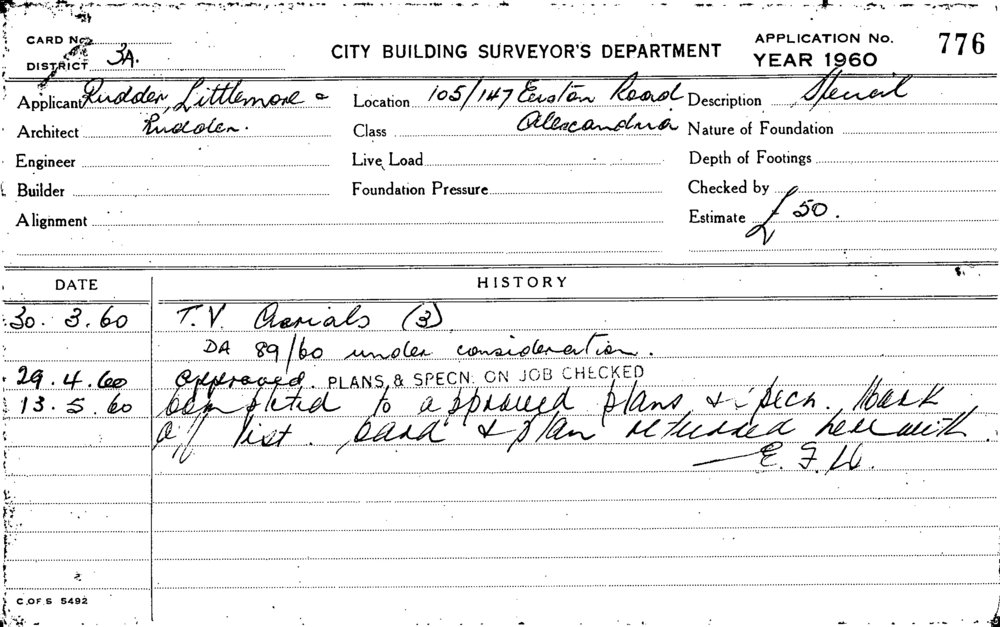 CARD No.
DISTRICT 3A.
CITY BUILDING SURVEYOR'S DEPARTMENT
APPLICATION No. 776
YEAR 1960
Applicant Rudder, Littlemore &
Architect Rudder.
Engineer
Builder
Alignment
Location 105/147 Euston Road
Alexandria
Class
Live Load
Foundation Pressure
Description
Nature of Foundation
Depth of Footings
Checked by
Estimate £50.
DATE HISTORY
30. 3. 60 T.V. Aerials (3)
DA 89/60 under consideration.
29. 4. 60 approved. PLANS & SPECN. ON JOB CHECKED
13. 5. 60 Completed to approved plans & specn. Mark
off list. Card & plan returned herewith.
C.OF S 5492